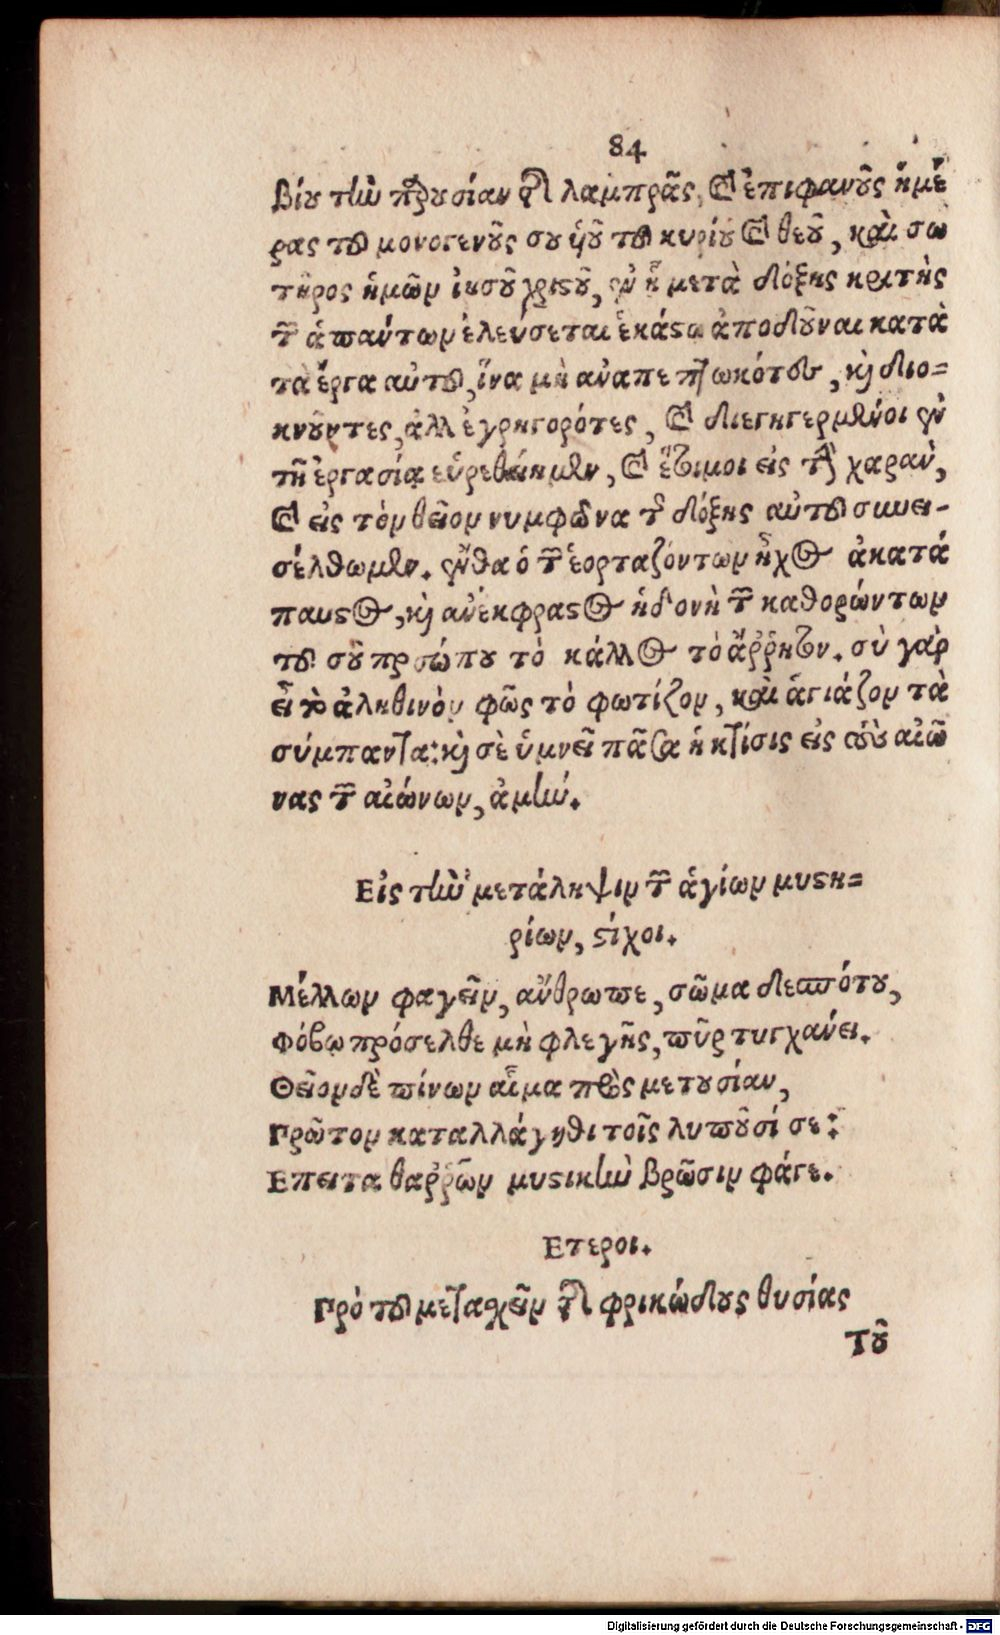 84
βίου τὴν παρουσίαν τῆς λαμπρᾶς, καὶ ἐπιφανοῦς ἡμέ
ρας τοῦ μονογενοῦς σου ὑιοῦ τοῦ κυρίου καὶ θεοῦ, καὶ σω
τῆρος ἡμῶν ἰησοῦ χριστοῦ, ἐν ᾗ μετὰ δόξης κριτὴς
τῶν ἁπάντων ἐλεύσεται ἑκάστῳ ἀποδοῦναι κατὰ
τὰ ἔργα αὐτοῦ, ἵνα μὴ ἀναπεπτωκότες, καὶ διο=
κνοῦντες, ἀλλ ἐγρηγορότες, καὶ διεγηγερμένοι ἐν
τῇ ἐργασίᾳ εὑρεθείημεν, καὶ ἕτοιμοι εἰς τὴν χαρὰν,
καὶ εἰς τὸν θεῖον νυμφῶνα τῆς δόξης αὐτοῦ συνει-
σέλθωμεν. ἔνθα ὁ τῶν ἑορταζόντων ἦχος ἀκατά
παυστος, καὶ ἀνέκφραστος ἡδονὴ τῶν καθορώντων
τοῦ σοῦ προσώπου τὸ κάλλος τὸ ἄῤῥητον. σὺ γὰρ
εἶ τὸ ἀληθινὸν φῶς τὸ φωτίζον, καὶ ἁγιάζον τὰ
σύμπαντα: καὶ σὲ ὑμνεῖ πᾶσα ἡ κτίσις εἰς τοὺς αἰῶ
νας τῶν αἰώνων, ἀμήν.
Εἰς τὴν μετάληψιν τῶν ἁγίων μυστη=
ρίων, στίχοι.
Μέλλων φαγεῖν, ἄνθρωπε, σῶμα δεσπότου,
Φόβῳ πρόσελθε μὴ φλεγῇς, πῦρ τυγχάνει.
Θεῖον δὲ πίνων αἷμα πρὸς μετουσίαν,
Πρῶτον καταλλάγηθι τοῖς λυποῦσί σε:
Επειτα θαῤῥῶν μυστικὴν βρῶσιν φάγε.
Ετεροι.
Πρὸ τοῦ μετασχεῖν τῆς φρικώδους θυσίας
Τοῦ
Digitalisierung gefördert durch die Deutsche Forschungsgemeinschaft - DFG